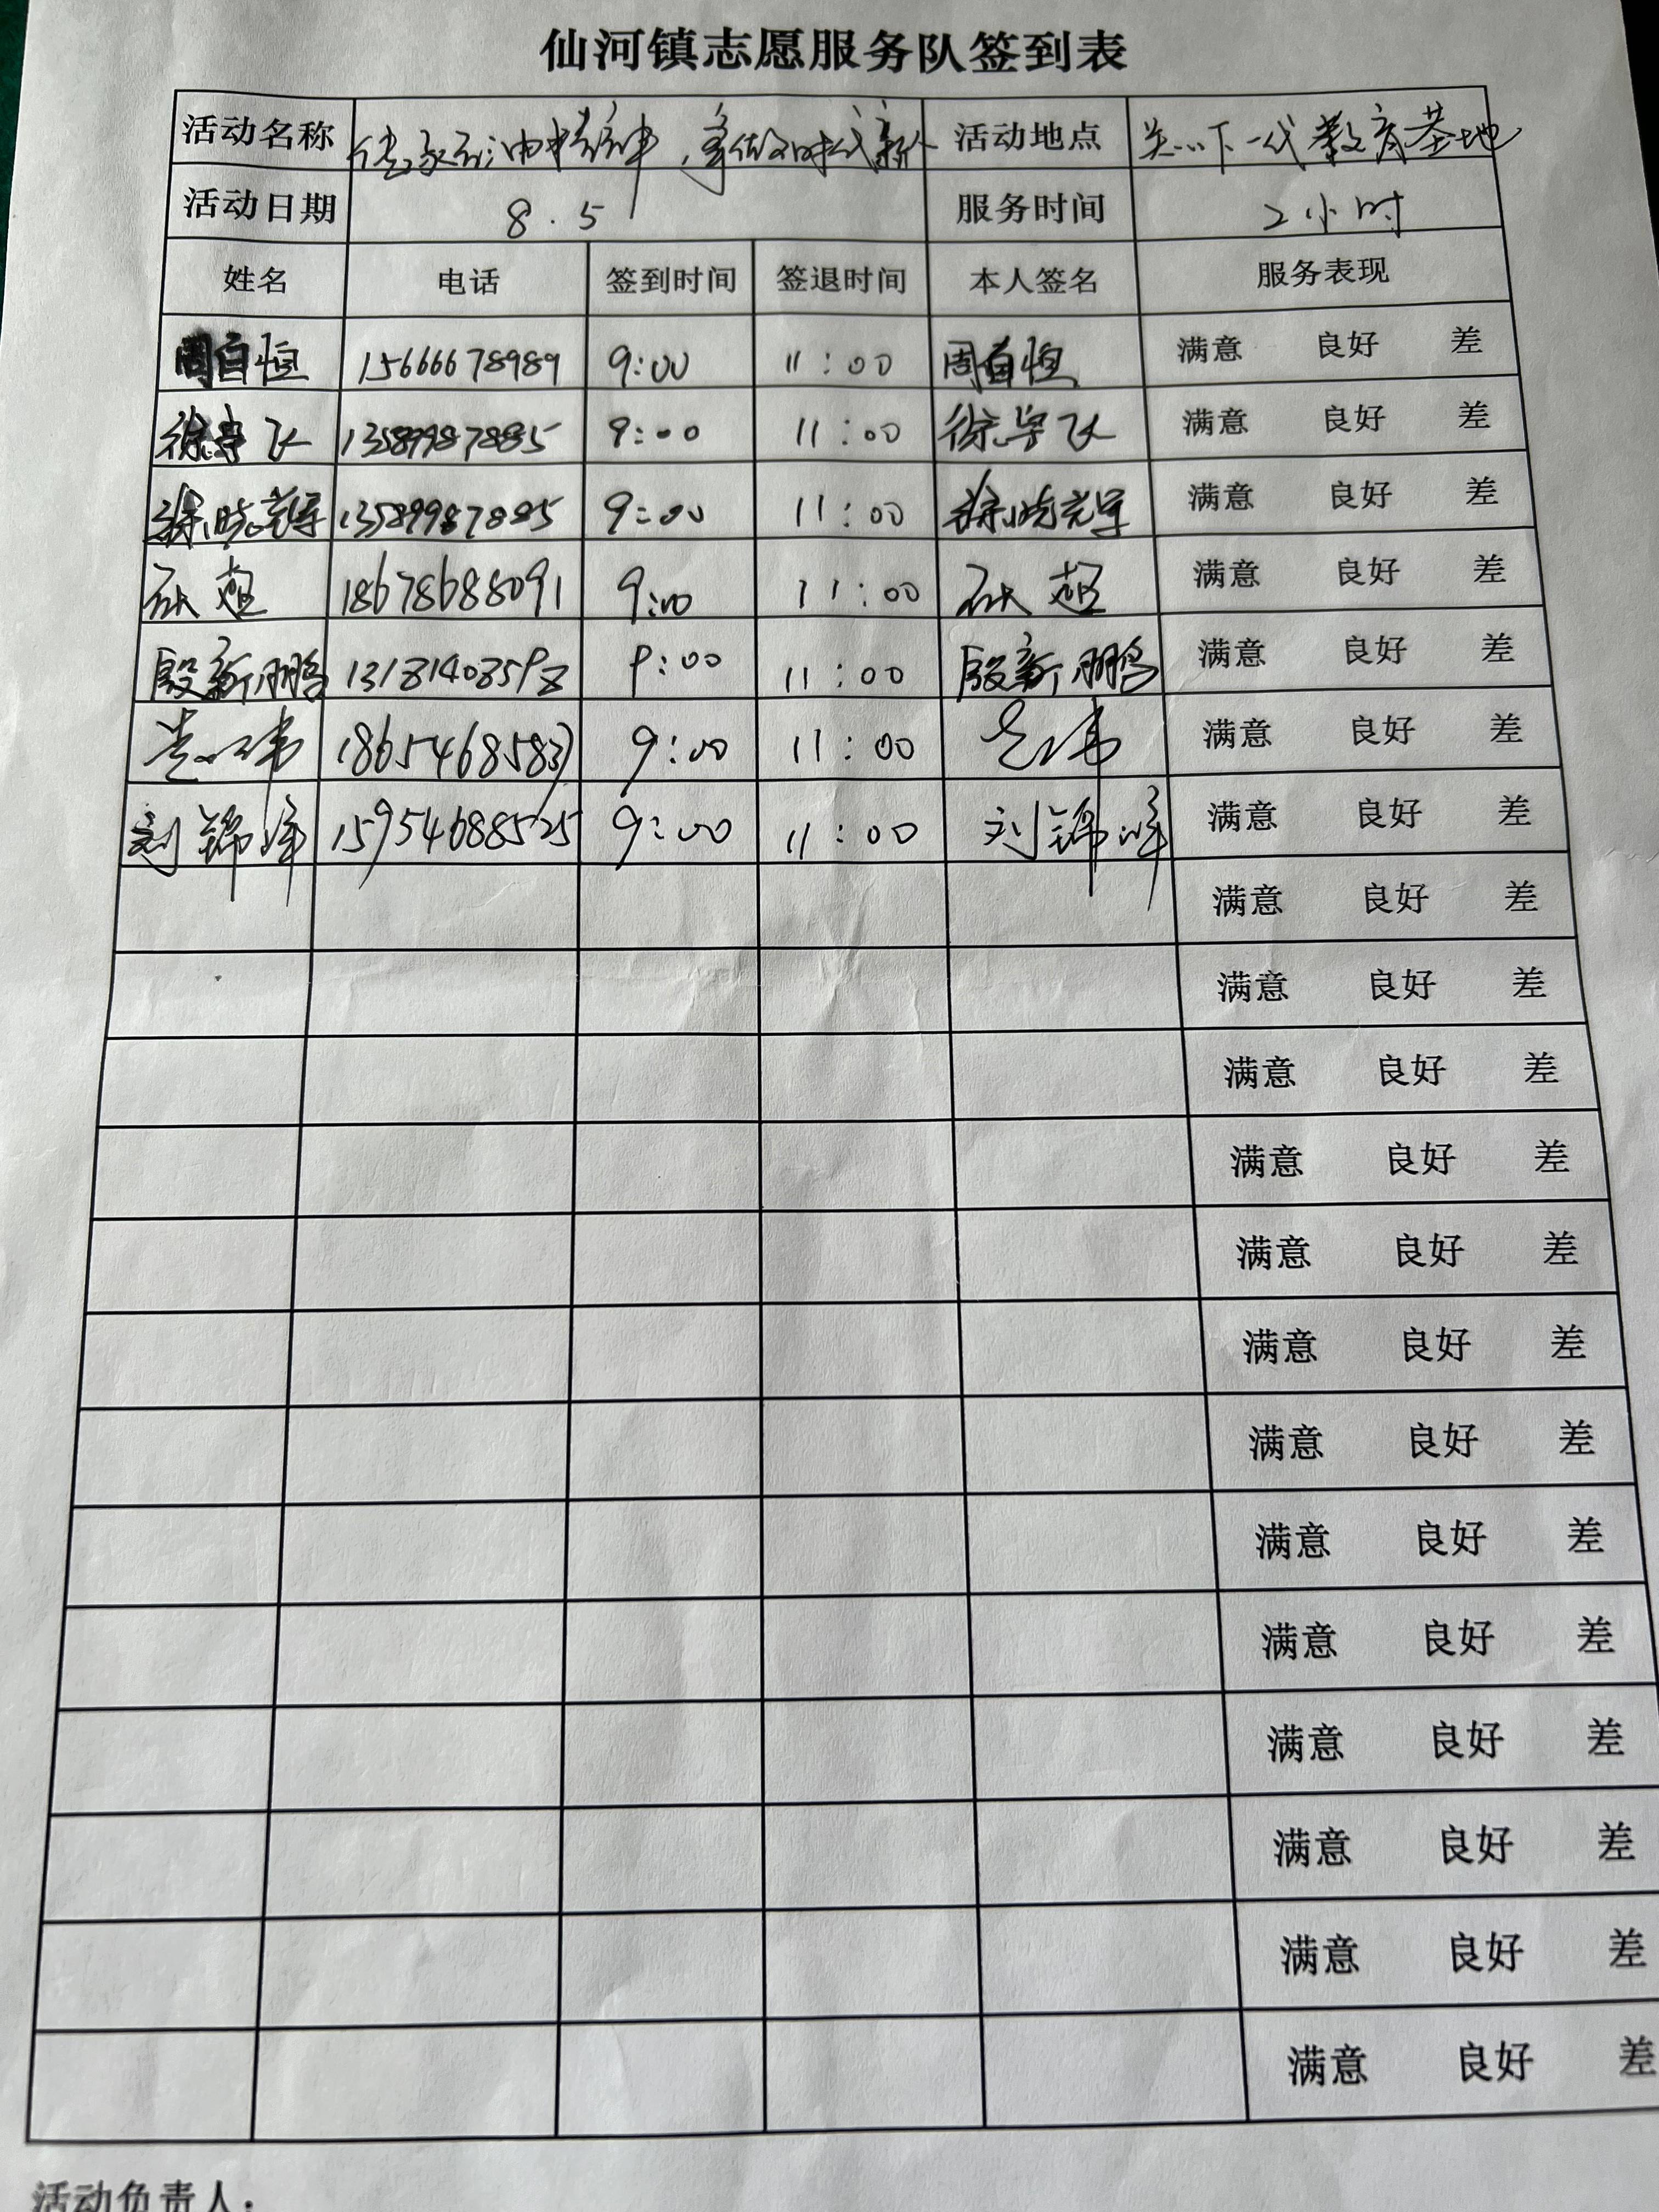 仙河镇志愿服务队签到表
活动名称 传承石油精神,争做时代新人 活动地点 关心下一代教育基地
活动日期 8.5 服务时间 2小时
姓名 电话 签到时间 签退时间 本人签名 服务表现
周自恒 15666678989 9:00 11:00 周自恒 满意 良好 差
徐宇飞 13589987885 9:00 11:00 徐宇飞 满意 良好 差
徐晓 13589987885 9:00 11:00 徐晓 满意 良好 差
超 18678688091 9:00 11:00 超 满意 良好 差
殷新鹏 13181403598 9:00 11:00 殷新鹏 满意 良好 差
伟 18654685837 9:00 11:00 伟 满意 良好 差
刘锦峰 15954688525 9:00 11:00 刘锦峰 满意 良好 差
满意 良好 差
满意 良好 差
满意 良好 差
满意 良好 差
满意 良好 差
满意 良好 差
满意 良好 差
满意 良好 差
满意 良好 差
满意 良好 差
满意 良好 差
满意 良好 差
满意 良好 差
活动负责人: